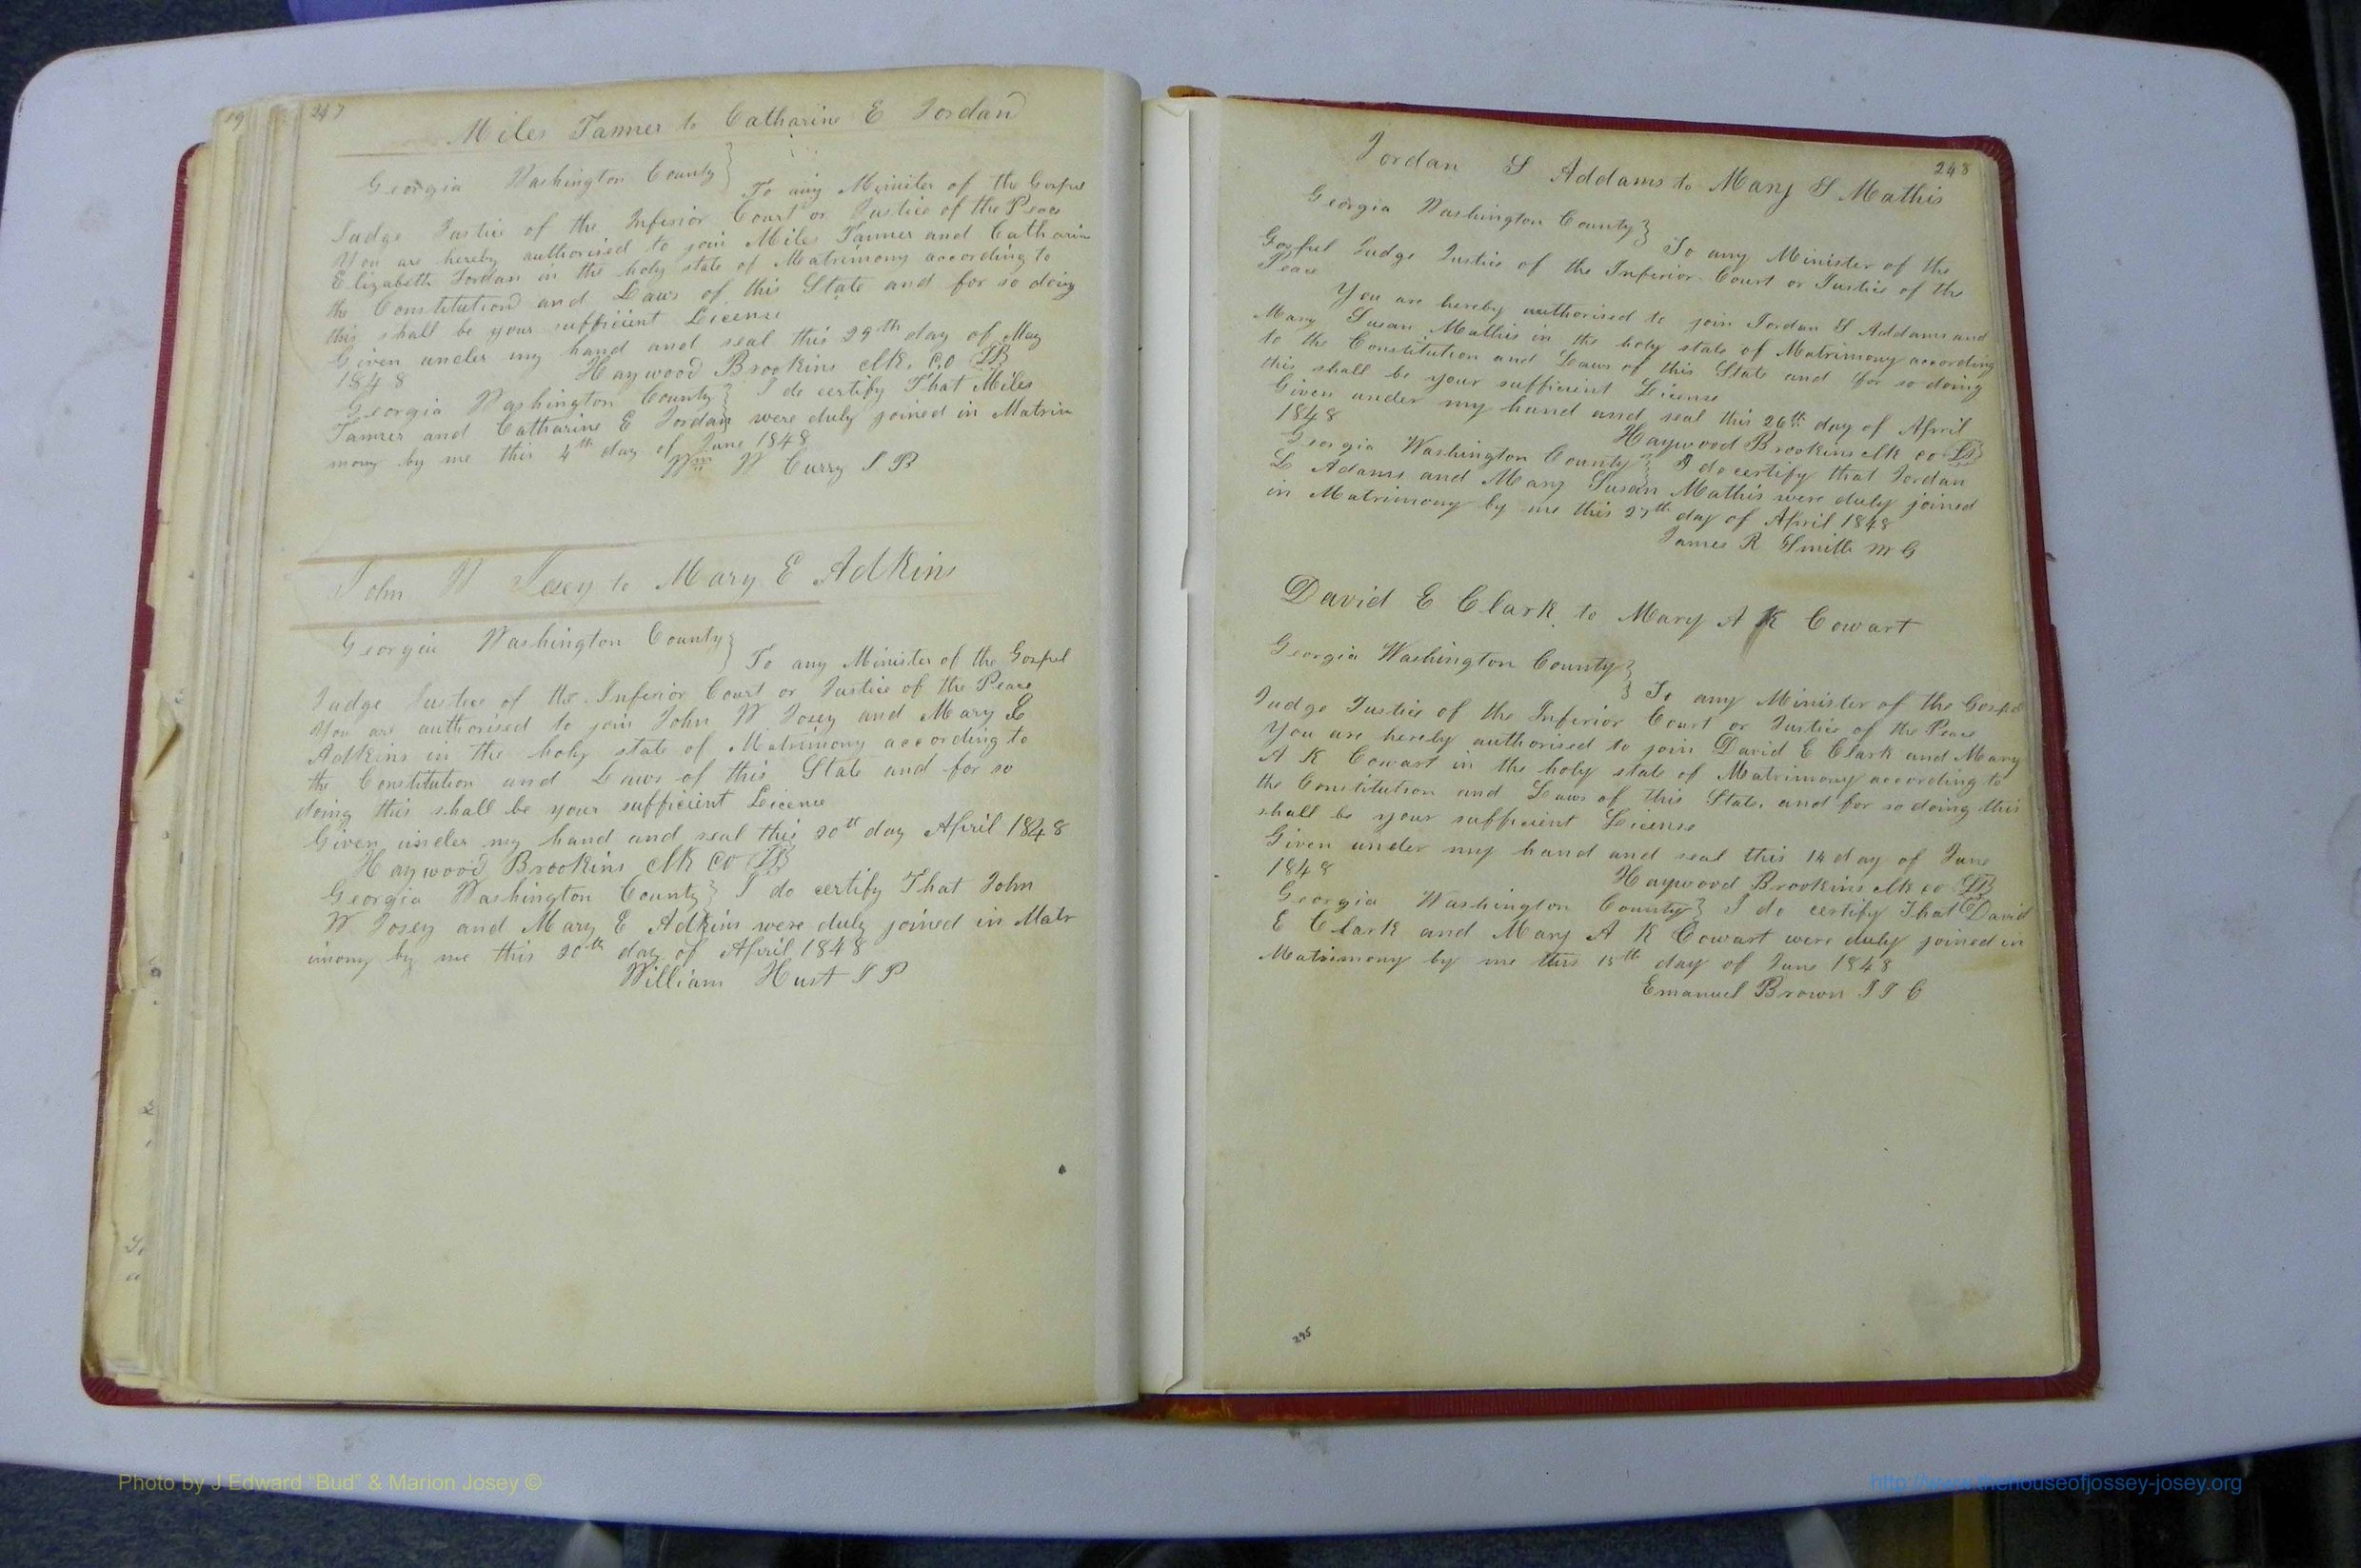 19
247
Miles Tanner to Catharine E Jordan
Georgia Washington County
To any Minister of the Gospel
Judge Justice of the Inferior Court or Justice of the Peace
You are hereby authorised to join Miles Tanner and Catharin
Elizabeth Jordan in the holy state of Matrimony according to
the Constitution and Laws of this State and for so doing
this shall be your sufficient License
Given under my hand and seal this 29th day of May
1848 Haywood Brookins clk co
Georgia Washington County } I do certify That Miles
Tanner and Catharine E Jordan were duly joined in Matrim
mony by me this 4th day of June 1848
Wm W Curry J P
John W Josey to Mary E Adkins
Georgia Washington County
To any Minister of the Gospel
Judge Justice of the Inferior Court or Justice of the Peace
You are authorised to join John W Josey and Mary E
Adkins in the holy state of Matrimony according to
the Constitution and Laws of this State and for so
doing this shall be your sufficient License
Given under my hand and seal this 20th day April 1848
Haywood Brookins clk co
Georgia Washington County } I do certify That John
W Josey and Mary E Adkins were duly joined in Matr
imony by me this 20th day of April 1848
William Hust J P
248
Jordan S Addams to Mary S Mathis
Georgia Washington County }
To any Minister of the
Gospel Judge Justice of the Inferior Court or Justice of the
Peace
You are hereby authorised to join Jordan S Addams and
Mary Susan Mathis in the holy state of Matrimony according
to the Constitution and Laws of this State and for so doing
this shall be your sufficient License
Given under my hand and seal this 26th day of April
1848 Haywood Brookins clk co
Georgia Washington County } I do certify that Jordan
S Adams and Mary Susan Mathis were duly joined
in Matrimony by me this 27th day of April 1848
James R Smith M G
David E Clark to Mary A K Cowart
Georgia Washington County }
} To any Minister of the Gospel
Judge Justice of the Inferior Court or Justice of the Peace
You are hereby authorised to join David E Clark and Mary
A K Cowart in the holy state of Matrimony according to
the Constitution and Laws of this State, and for so doing this
shall be your sufficient License
Given under my hand and seal this 14 day of June
1848 Haywood Brookins clk co
Georgia Washington County } I do certify That David
E Clark and Mary A K Cowart were duly joined in
Matrimony by me this 15th day of June 1848
Emanuel Brown J I C
295
Photo by J Edward “Bud” & Marion Josey ©
http://www.thehouseofjossey-josey.org